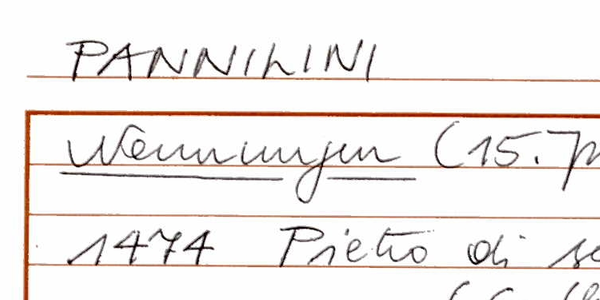 PANNILINI
Nennungen (15.
1474 Pietro di